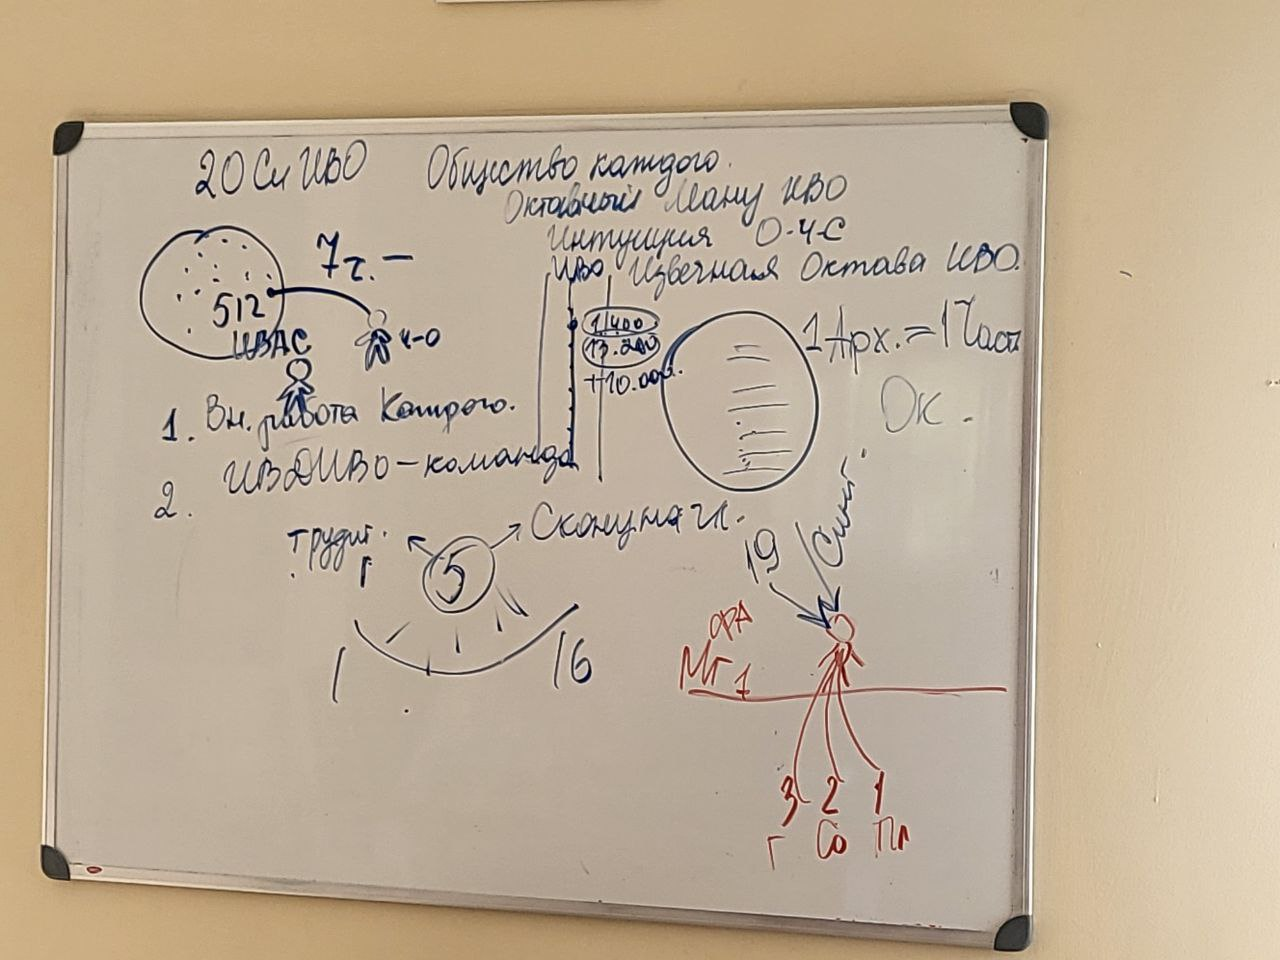 20 Си ИВО Общество каждого.
Октавный Ману ИВО
Интуиция О-Ч-С
ИВО Извечная Октава ИВО.
7 г. –
512
ИВАС
ч-О
13.200
+10.000.
1 Арх. = 1 Часть
Ок.
1. Вн. работа Каждого.
2. ИВДИВО – команда
5
1
16
19
Синт.
ОРА
Мг 1
3 2 1
Г Со Пл